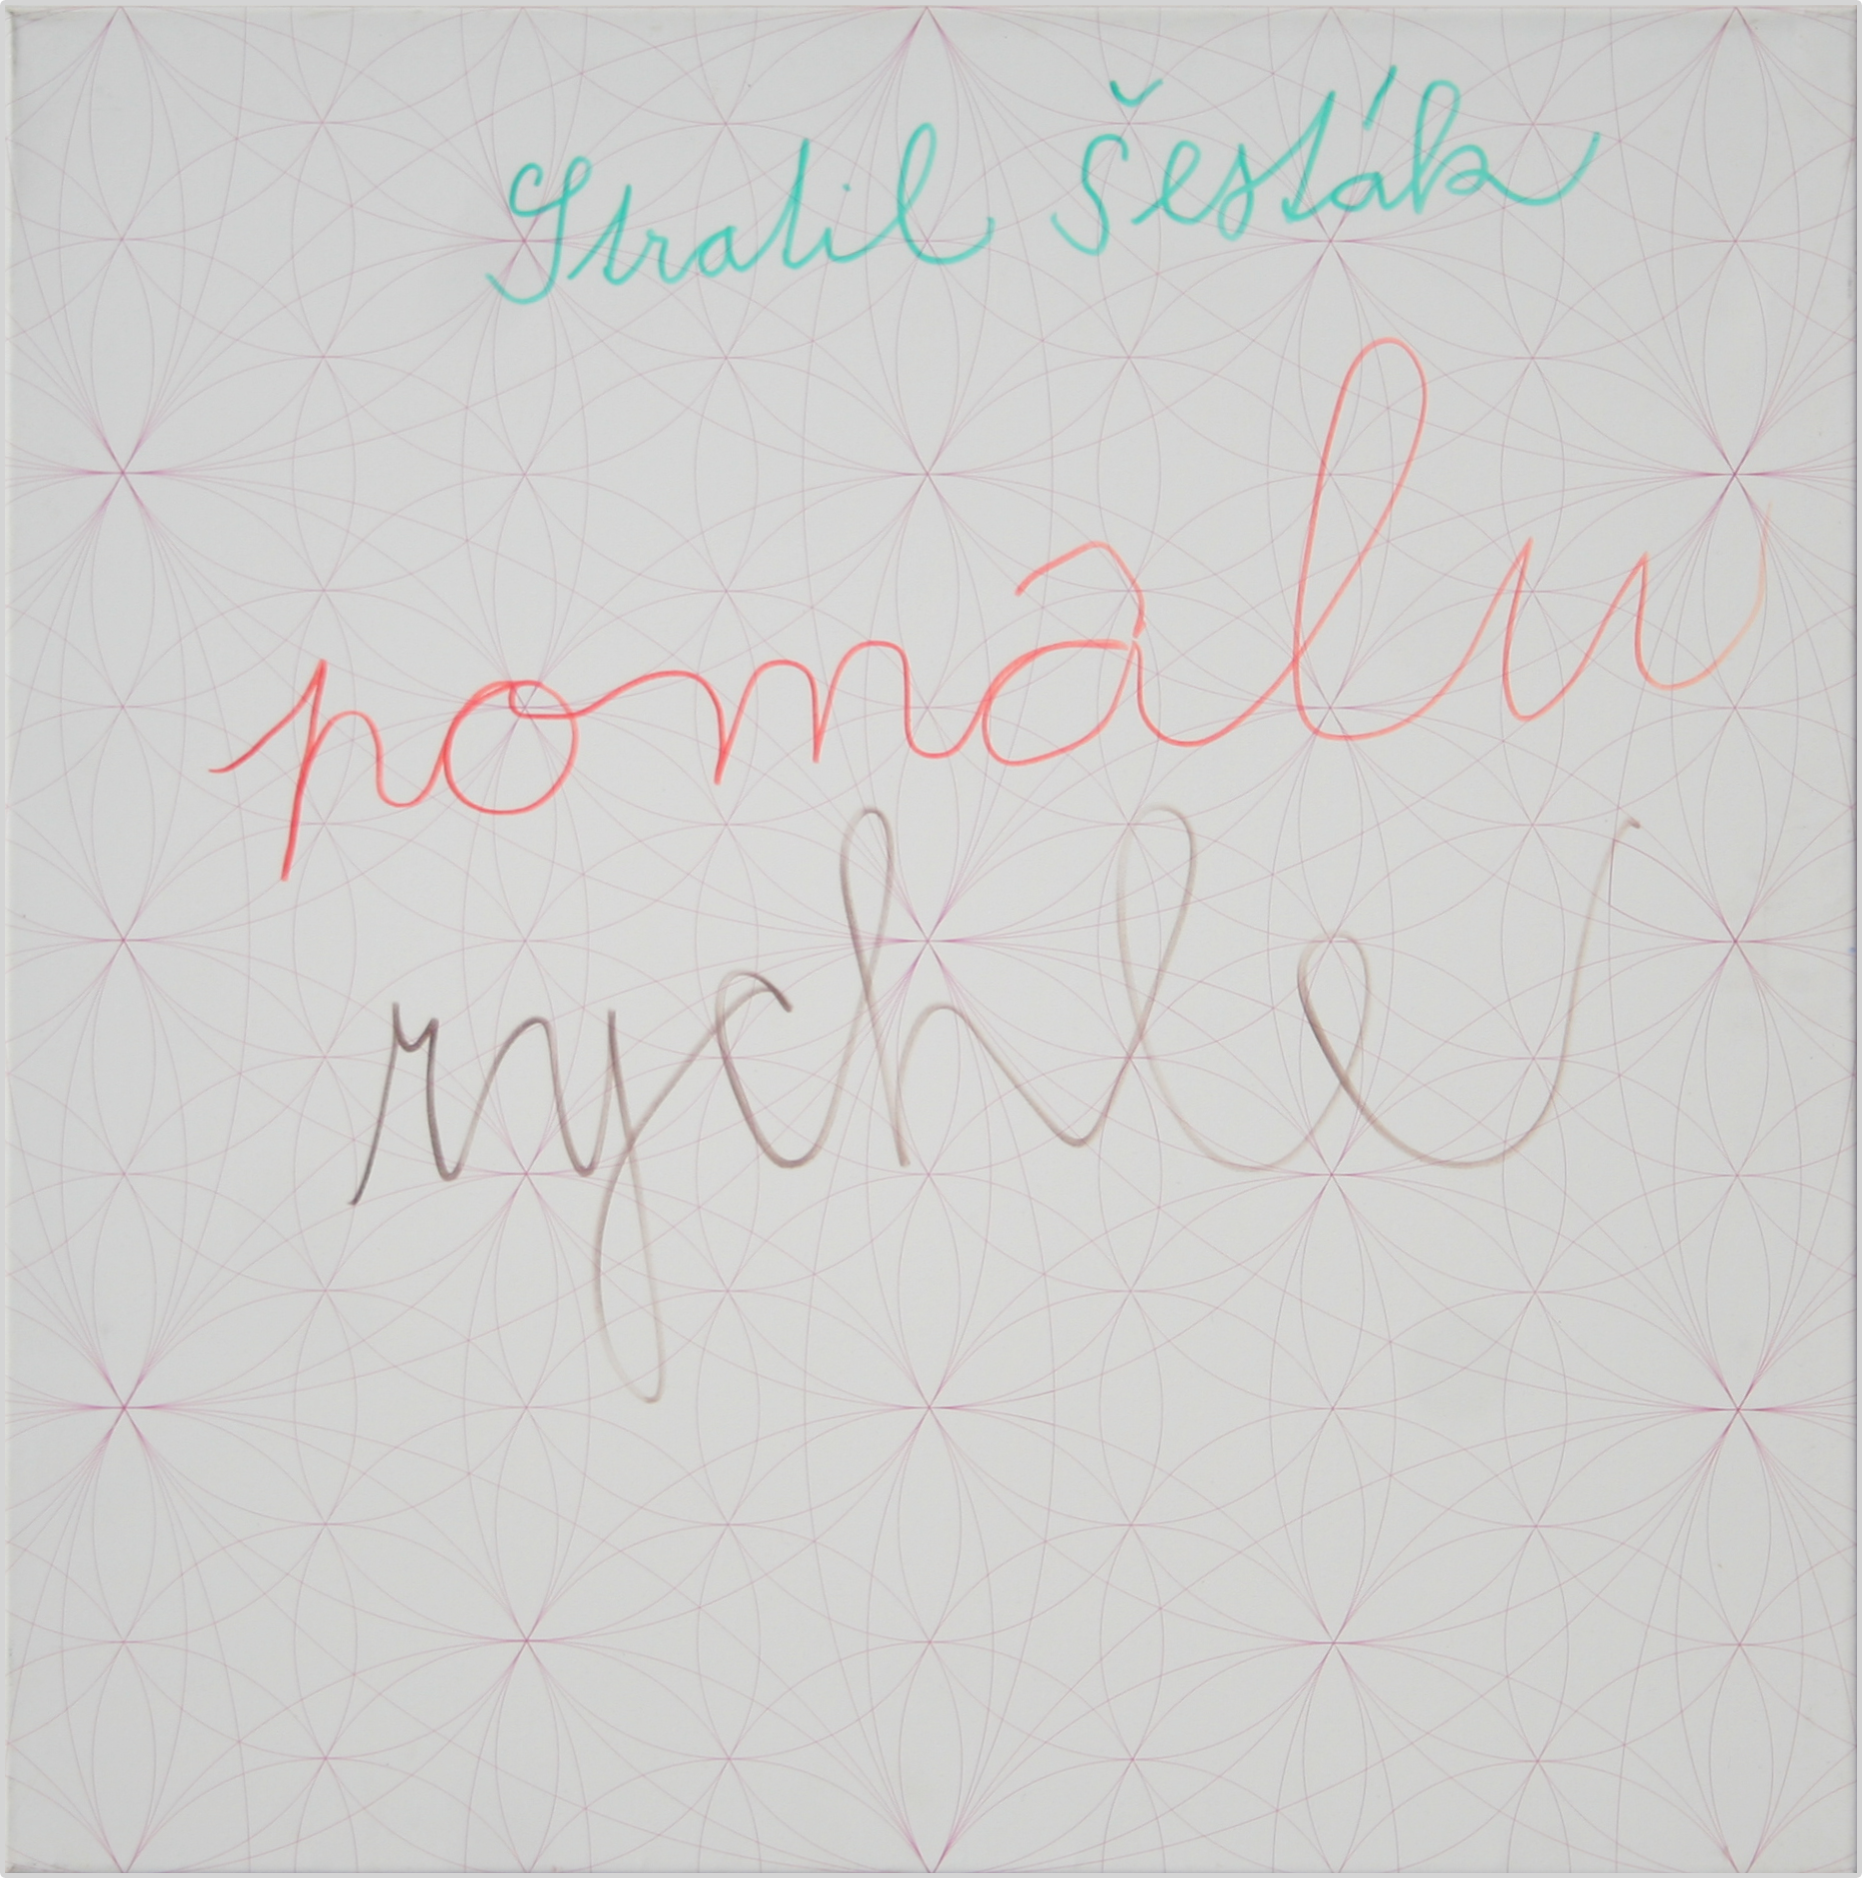 Stratil Šesták
pomalu
rychle